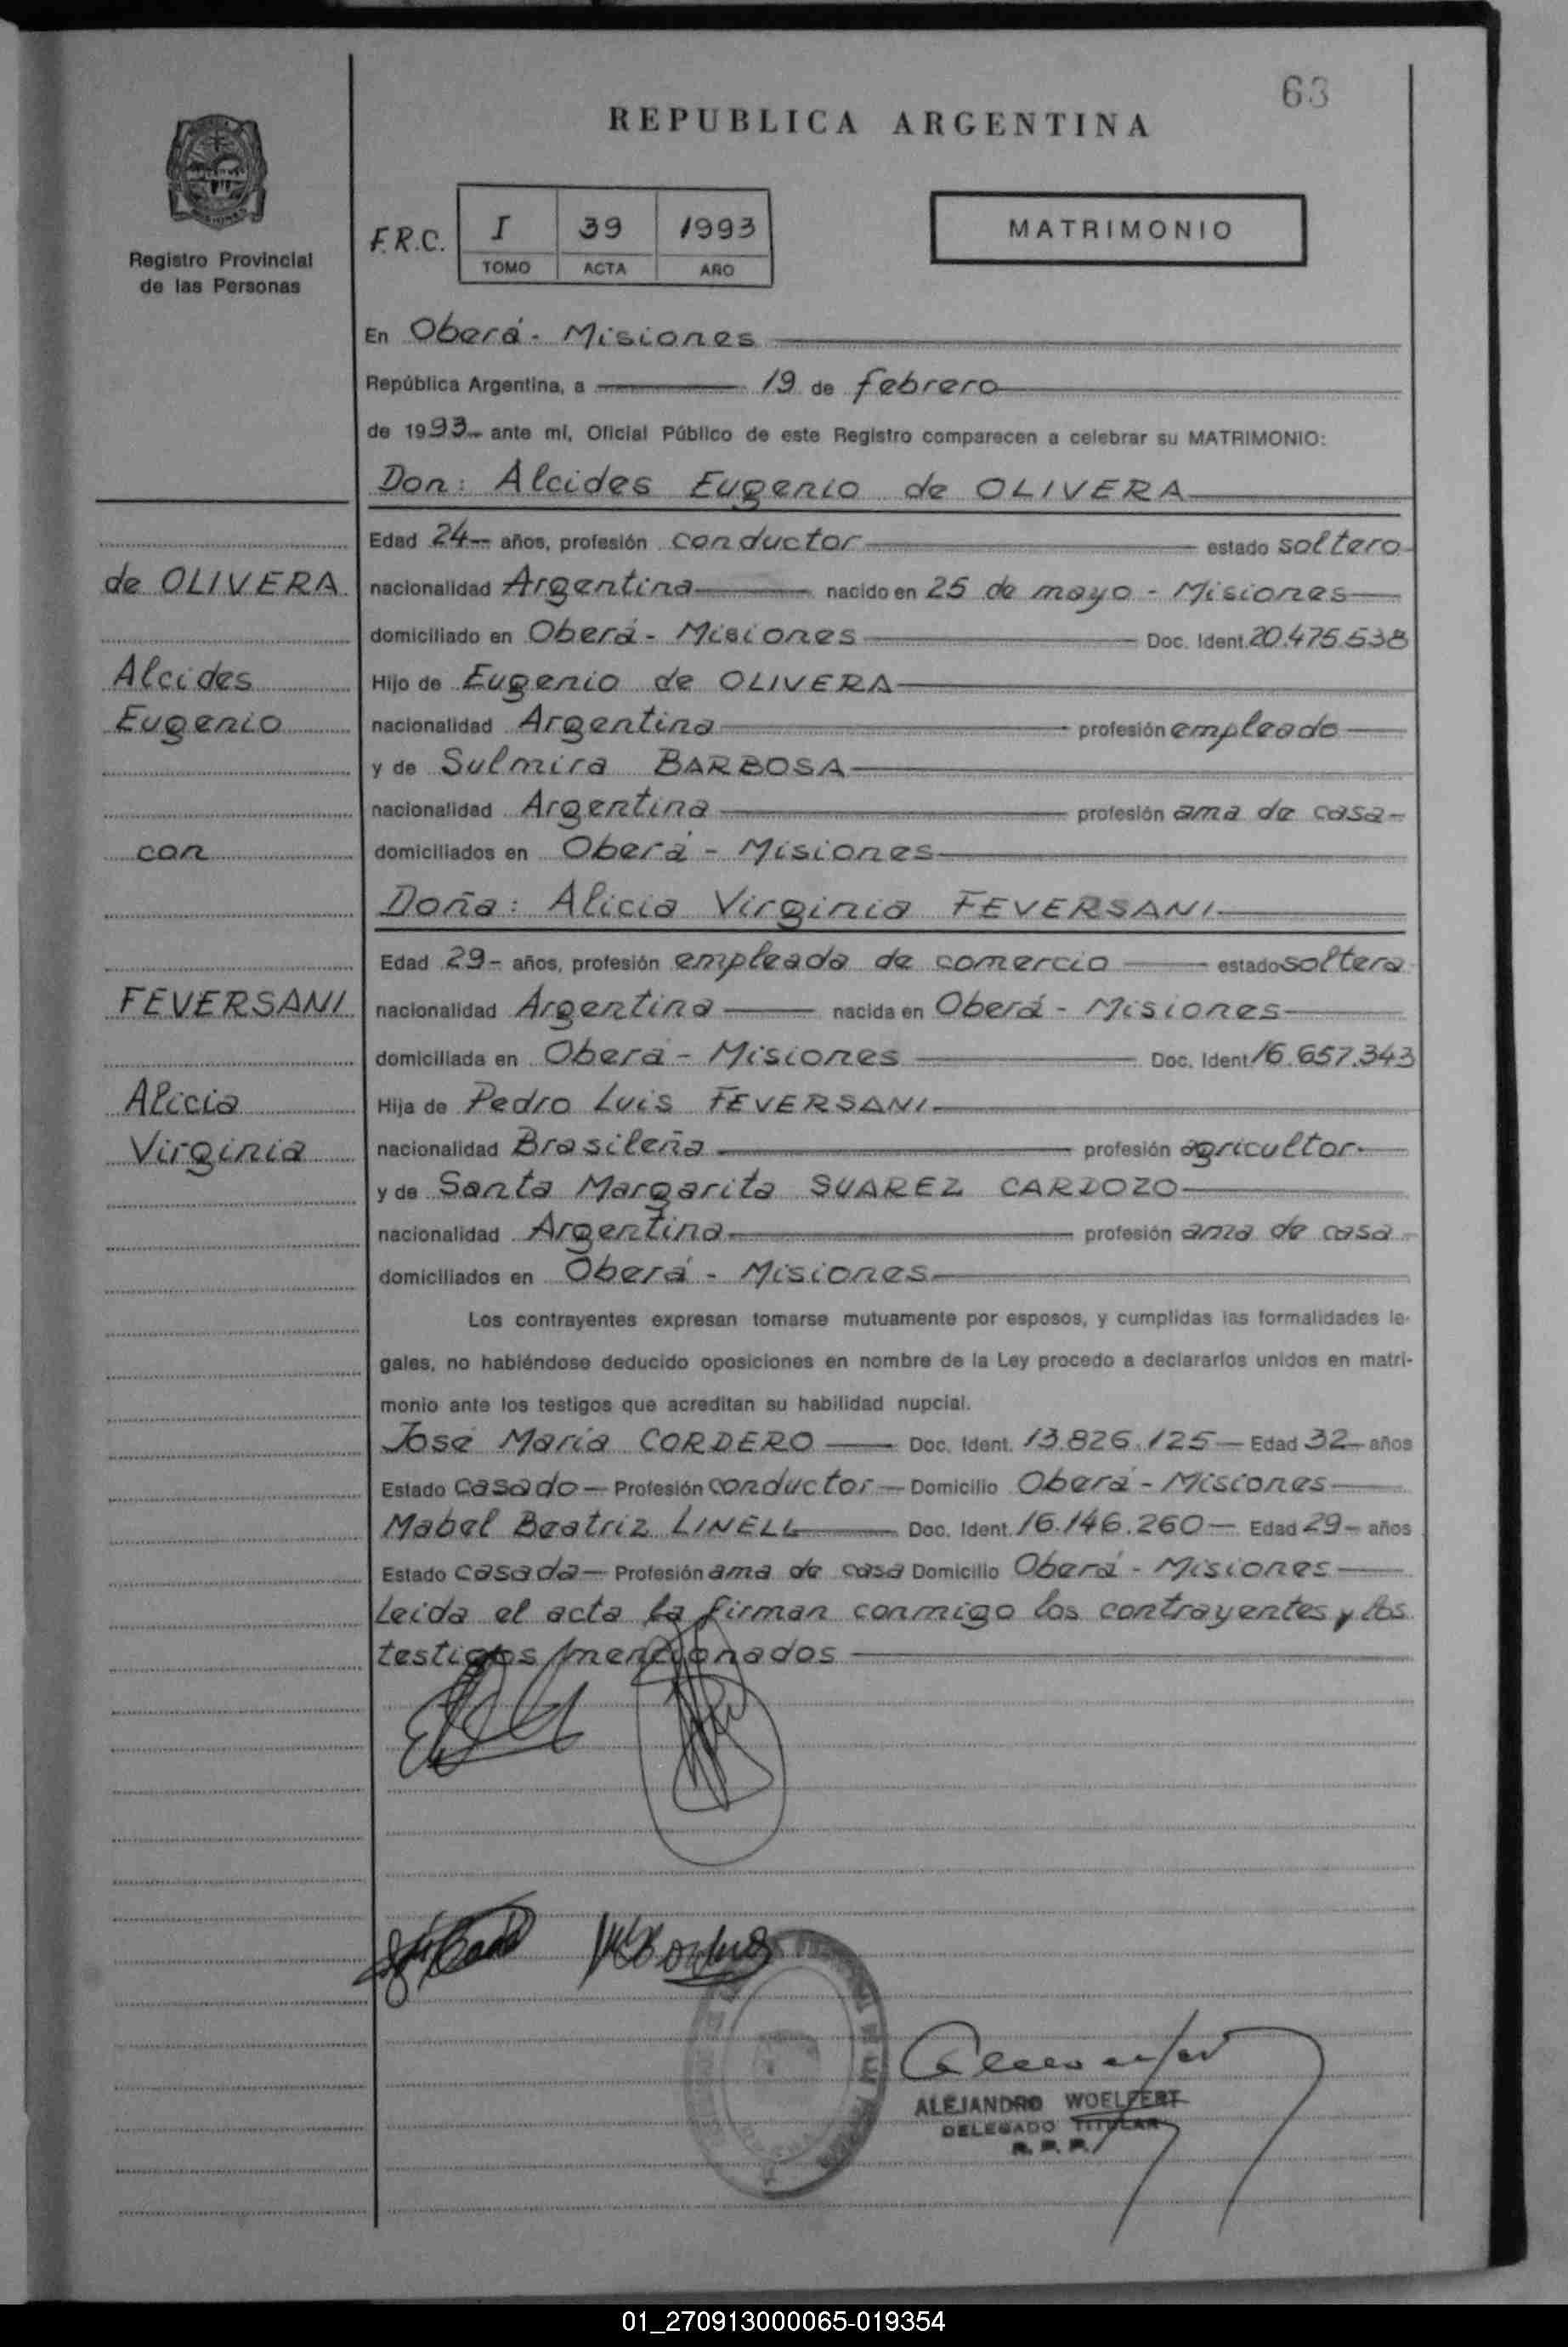 63
REPUBLICA ARGENTINA
Registro Provincial
de las Personas
F.R.C.
I 39 1993
TOMO ACTA AÑO
MATRIMONIO
En Oberá - Misiones
República Argentina, a 19 de febrero
de 1993 ante mí, Oficial Público de este Registro comparecen a celebrar su MATRIMONIO:
Don: Alcides Eugenio de OLIVERA
Edad 24 años, profesión conductor estado soltero
de OLIVERA nacionalidad Argentina nacido en 25 de mayo - Misiones
domiciliado en Oberá - Misiones Doc. Ident. 20.475.538
Alcides Hijo de Eugenio de OLIVERA
Eugenio nacionalidad Argentina profesión empleado
y de Sulmira BARBOSA
nacionalidad Argentina profesión ama de casa
con domiciliados en Oberá - Misiones
Doña: Alicia Virginia FEVERSANI
Edad 29 años, profesión empleada de comercio estado soltera
FEVERSANI nacionalidad Argentina nacida en Oberá - Misiones
domiciliada en Oberá - Misiones Doc. Ident. 16.657.343
Alicia Hija de Pedro Luis FEVERSANI
Virginia nacionalidad Brasileña profesión agricultor
y de Santa Margarita SUAREZ CARDOZO
nacionalidad Argentina profesión ama de casa
domiciliados en Oberá - Misiones
Los contrayentes expresan tomarse mutuamente por esposos, y cumplidas las formalidades le-
gales, no habiéndose deducido oposiciones en nombre de la Ley procedo a declararlos unidos en matri-
monio ante los testigos que acreditan su habilidad nupcial.
José María CORDERO Doc. Ident. 13.826.125 Edad 32 años
Estado casado Profesión conductor Domicilio Oberá - Misiones
Mabel Beatriz LINELL Doc. Ident. 16.146.260 Edad 29 años
Estado casada Profesión ama de casa Domicilio Oberá - Misiones
Leida el acta la firman conmigo los contrayentes y los
testigos mencionados
ALEJANDRO WOELFERT
DELEGADO TITULAR
R. P. P.
01_270913000065-019354